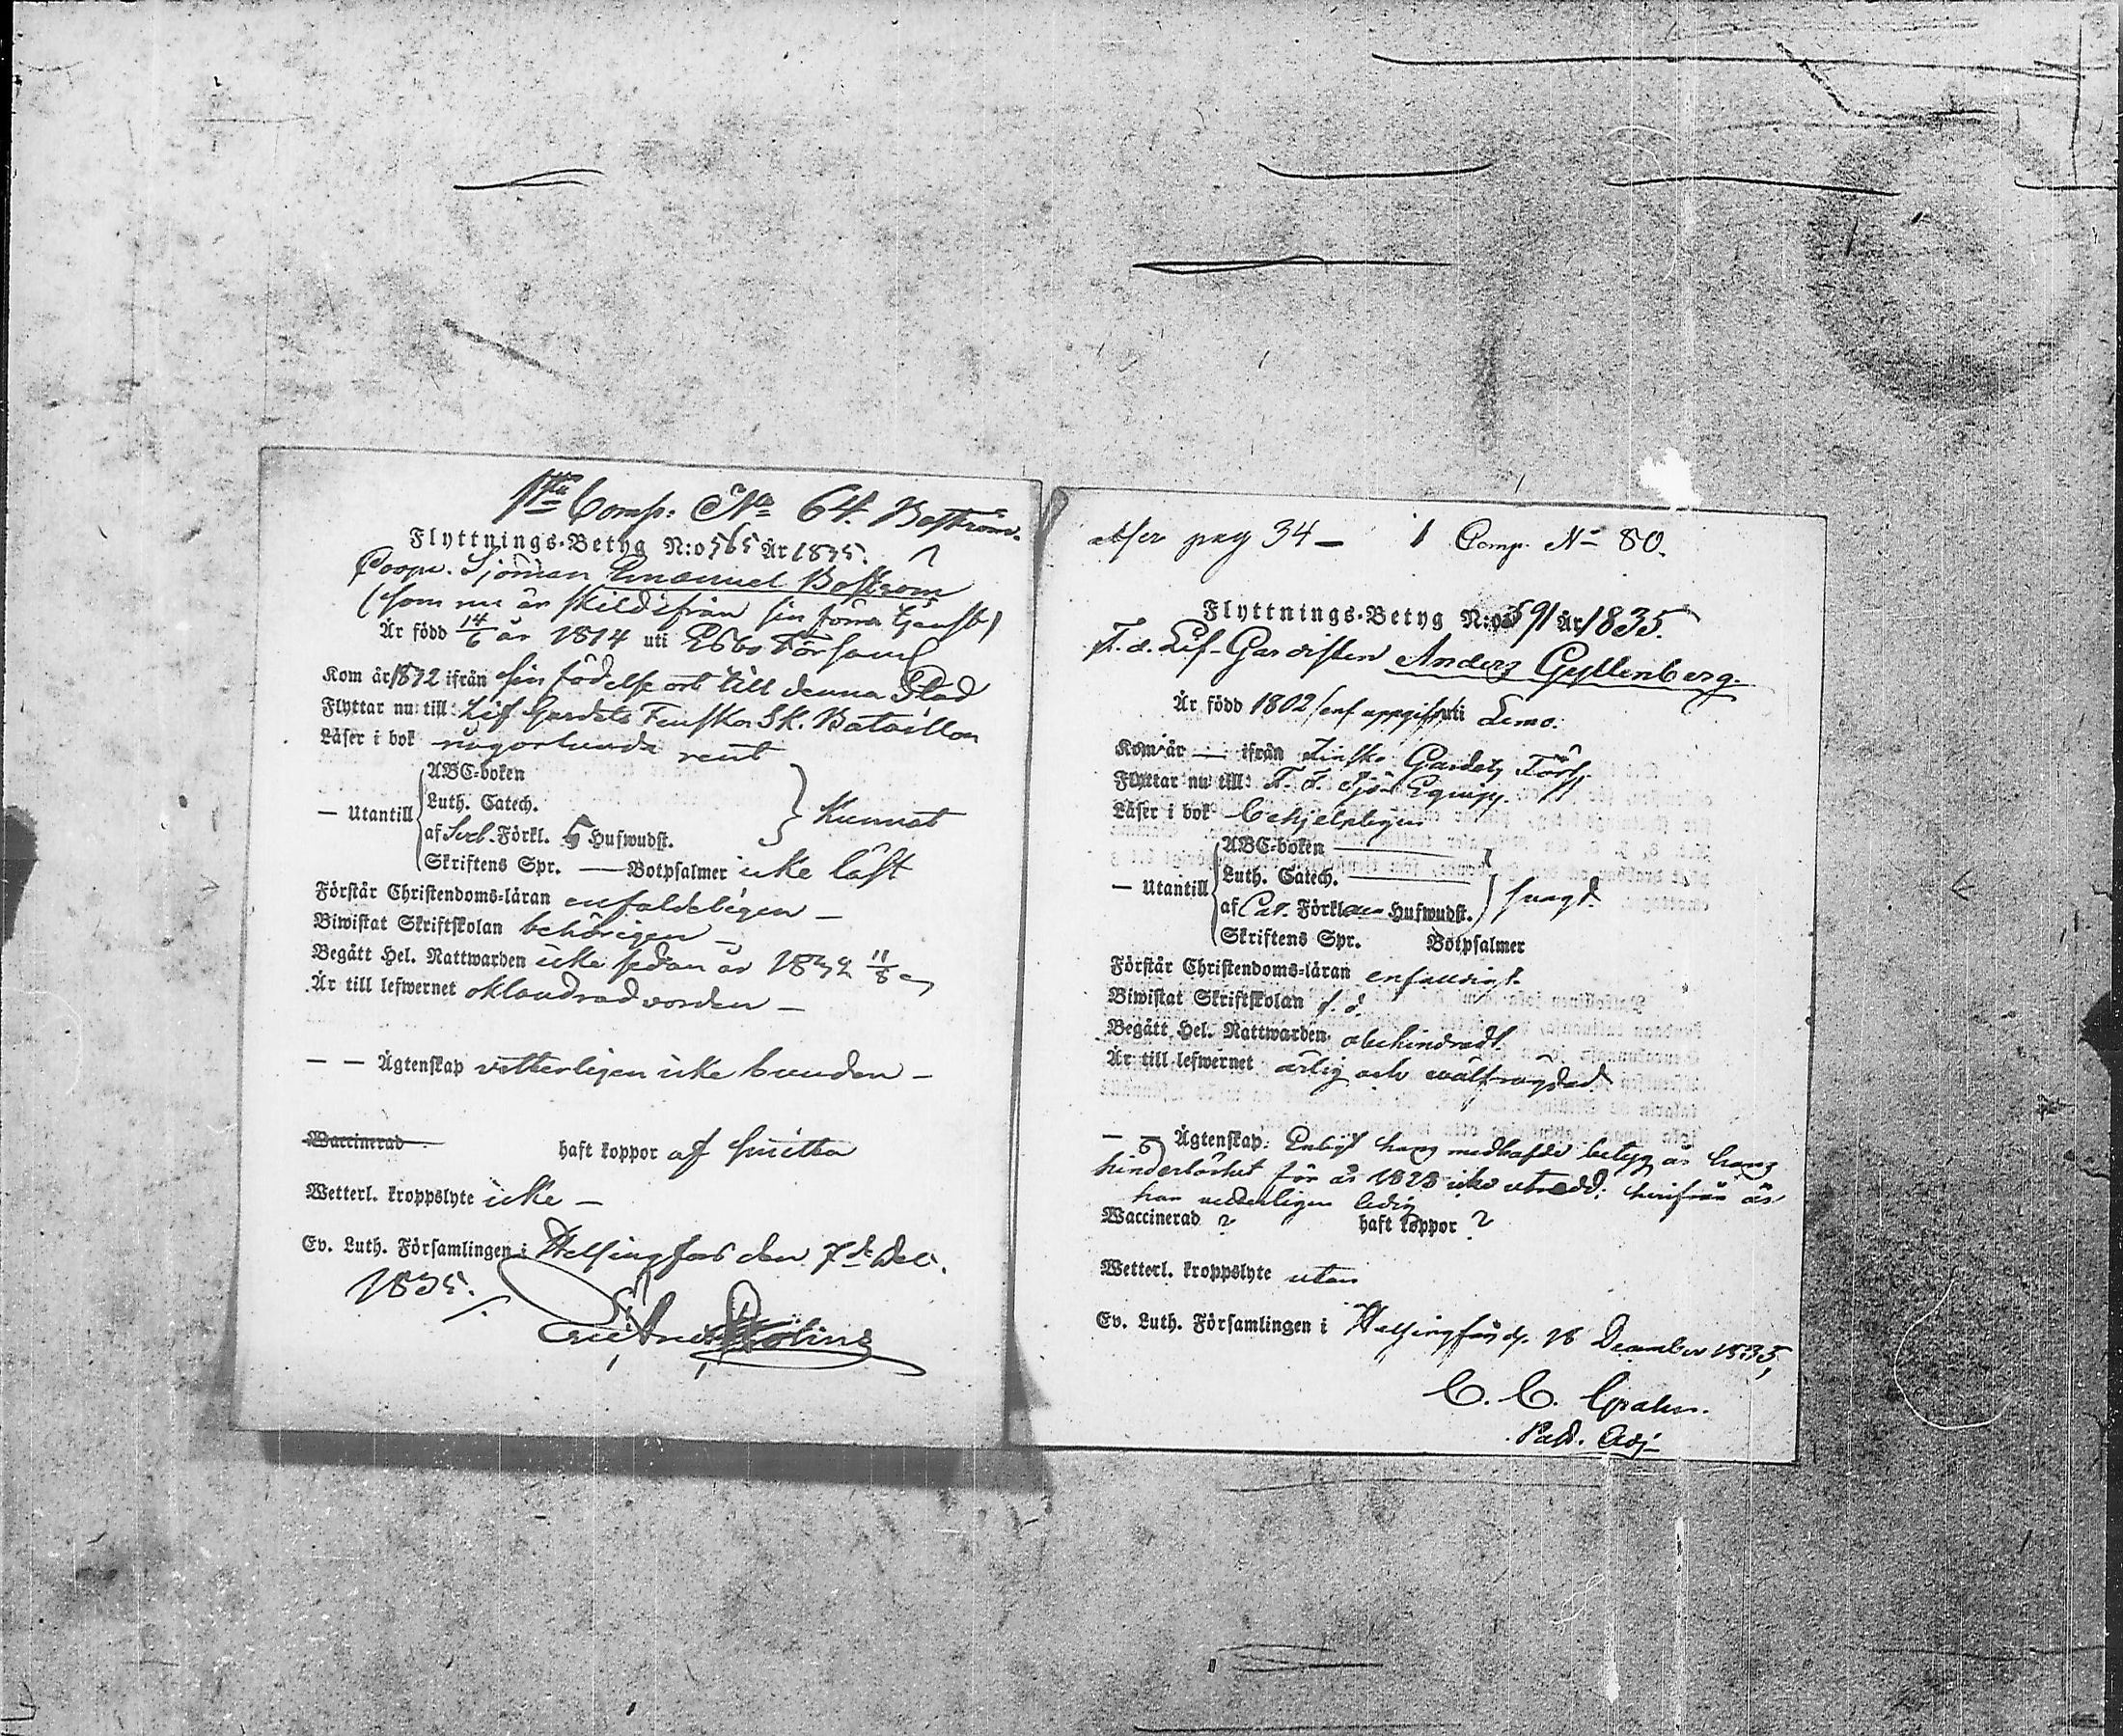 1sta Comp. No 64. Boström.
Flyttnings-Betyg N:o 565 År 1835.
Coopv. Sjöman Emanuel Boström
(som nu är skild ifrån sin förra tjenst)
Är född 14/6 år 1814 uti Esbo Församl
Kom år 1832 ifrån sin födelse ort till denna Stad
Flyttar nu till: Lif Gardets Finska Sk. Bataillon
Läser i bok någorlunda rent
ABC-boken
Luth. Catech.
— Utantill
af Sveb. Förkl. 5 Hufwudst.
Kunnat
Skriftens Spr. — Botpsalmer icke läst
Förstår Christendoms-läran enfaldeligen —
Biwistat Skriftskolan behörigen —
Begått Hel. Nattwarden icke sedan år 1832 11/8
Är till lefwernet oklandrad vorden —
— — Ägtenskap vetterligen icke bunden —
Waccinerad haft koppor af smitta
Wetterl. kroppslyte icke —
Ev. Luth. Församlingen i Helsingfors den 7de Dec.
1835.
afser pag 34 — 1 Comp. No 80.
Flyttnings-Betyg N:o 591 År 1835.
F. d. Lif-Gardisten Anders Gyllenberg.
Är född 1802 enl uppgift uti Lemo.
Kom år — ifrån Finska Gardets Förs.
Flyttar nu till: F. d. Sjö Equip.
Läser i bok behjelpligen
ABC-boken
Luth. Catech.
— Utantill
af Cat. Förkl Hufwudst.
svagt.
Skriftens Spr. Botpsalmer
Förstår Christendoms-läran enfaldigt.
Biwistat Skriftskolan
Begått Hel. Nattwarden obehindradt.
Är till lefwernet ärlig och wälfrägdad
— Ägtenskap: Enligt hans medhafde betyg är hans
hinderlöshet för år 1828 icke utredd; härifrån är
han vetterligen ledig
Waccinerad ? haft koppor ?
Wetterl. kroppslyte utan
Ev. Luth. Församlingen i Helsingfors d. 18 December 1835,
C. C. Grahn.
Past. Adj